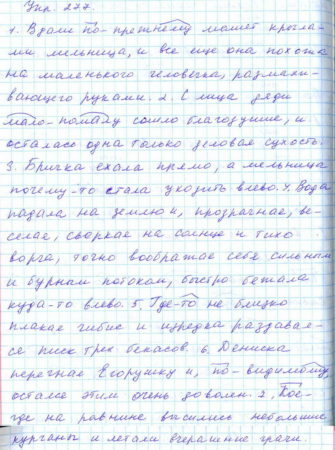 Упр. 277.
1. Вдали по-прежнему машет крыла-
ми мельница, и все еще она похожа
на маленького человечка, размахи-
вающего руками. 2. С лица дяди
мало-помалу сошло благодушие, и
осталась одна только деловая сухость.
3. Бричка ехала прямо, а мельница
почему-то стала уходить влево. 4. Вода
падала на землю и, прозрачная, ве-
селая, сверкая на солнце и тихо
ворча, точно воображая себя сильным
и бурным потоком, быстро бежала
куда-то влево. 5. Где-то не близко
плакал чибис и изредка раздавал-
ся писк трех бекасов. 6. Дениска
перегнал Егорушку и, по-видимому,
остался этим очень доволен. 7. Кое-
где на равнине высились небольшие
курганы и летали вчерашние грачи.